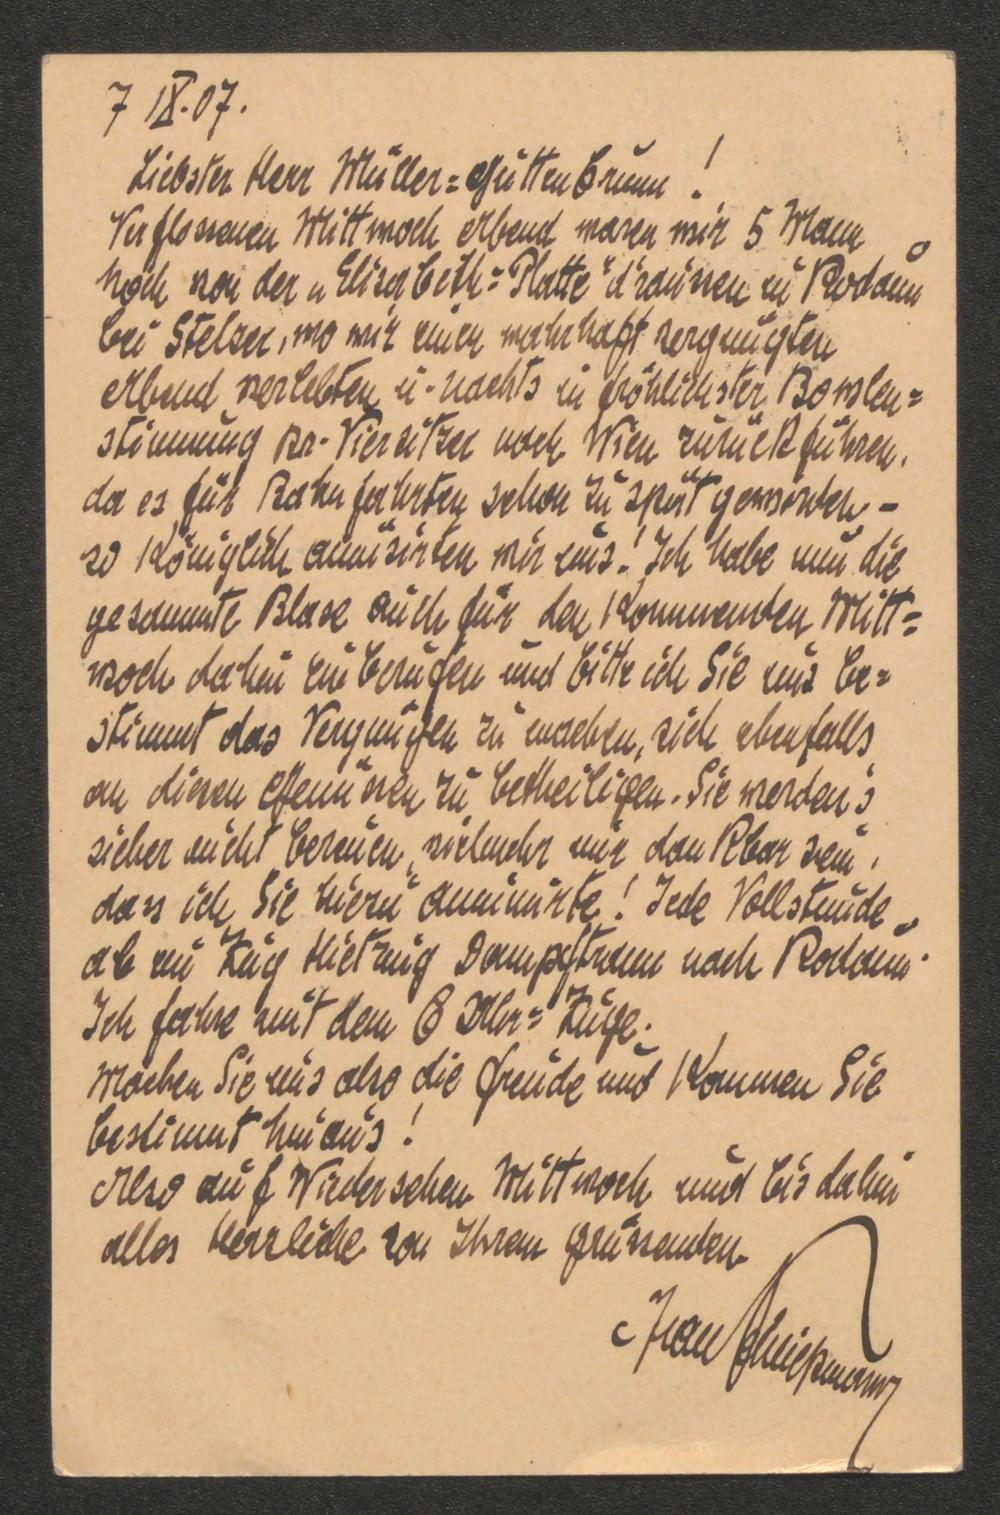 7 IX. 07.
Liebster Herr Müller=Guttenbrunn!
Verflossenen Mittwoch Abend waren wir 5 Mann
hoch von der „Elisabeth=Platte" d'raussen in Rodaun
bei Stelzer, wo wir einen wahrhaft vergnügten
Abend verlebten u. nachts in fröhlichster Bowlen=
stimmung pr. Viersitzer nach Wien zurückfuhren,
da es für Bahnfahrten schon zu spät geworden –
so königlich amüsirten wir uns! Ich habe nun die
gesammte Blase auch für den kommenden Mitt=
woch dahin einberufen und bitte ich Sie uns be=
stimmt das Vergnügen zu machen, sich ebenfalls
an diesen Genüssen zu betheiligen. Sie werden's
sicher nicht bereuen, vielmehr mir dankbar sein,
dass ich Sie hiezu animirte! Jede Vollstunde
ab ein Zug Hietzing Dampftram nach Rodaun.
Ich fahre mit dem 6 Uhr= Zuge.
Machen Sie uns also die Freude und kommen Sie
bestimmt hinaus!
Also auf Wiedersehen Mittwoch und bis dahin
alles Herzliche von Ihrem grüssenden
Jean